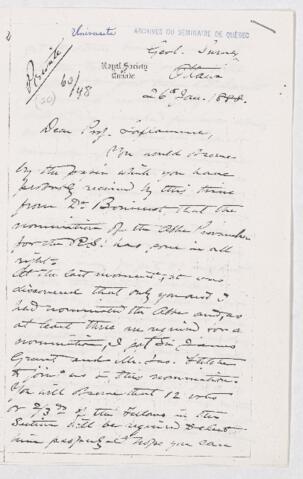 Université
ARCHIVES DU SÉMINAIRE DE QUÉBEC
Private
63/48
(20)
Royal Society
of
Canada
Geol. Survey
Ottawa
26th Jan. 1888.
Dear Prof. Laflamme,
You would observe
by the which you have
probably received by this time
from Dr Bourinot, that the
nomination of the Abbé Provancher
for the R.S. has gone in all
right.
At the last moment, it was
discovered that only you and I
had nominated the Abbe and, as
at least three are required for a
nomination, I got Sir James
Grant and Mr. Jas. Fletcher
to join us in this nomination.
You will observe that 12 votes
or 2/3rds of the Fellows in this
Section will be required to elect
him hope you can